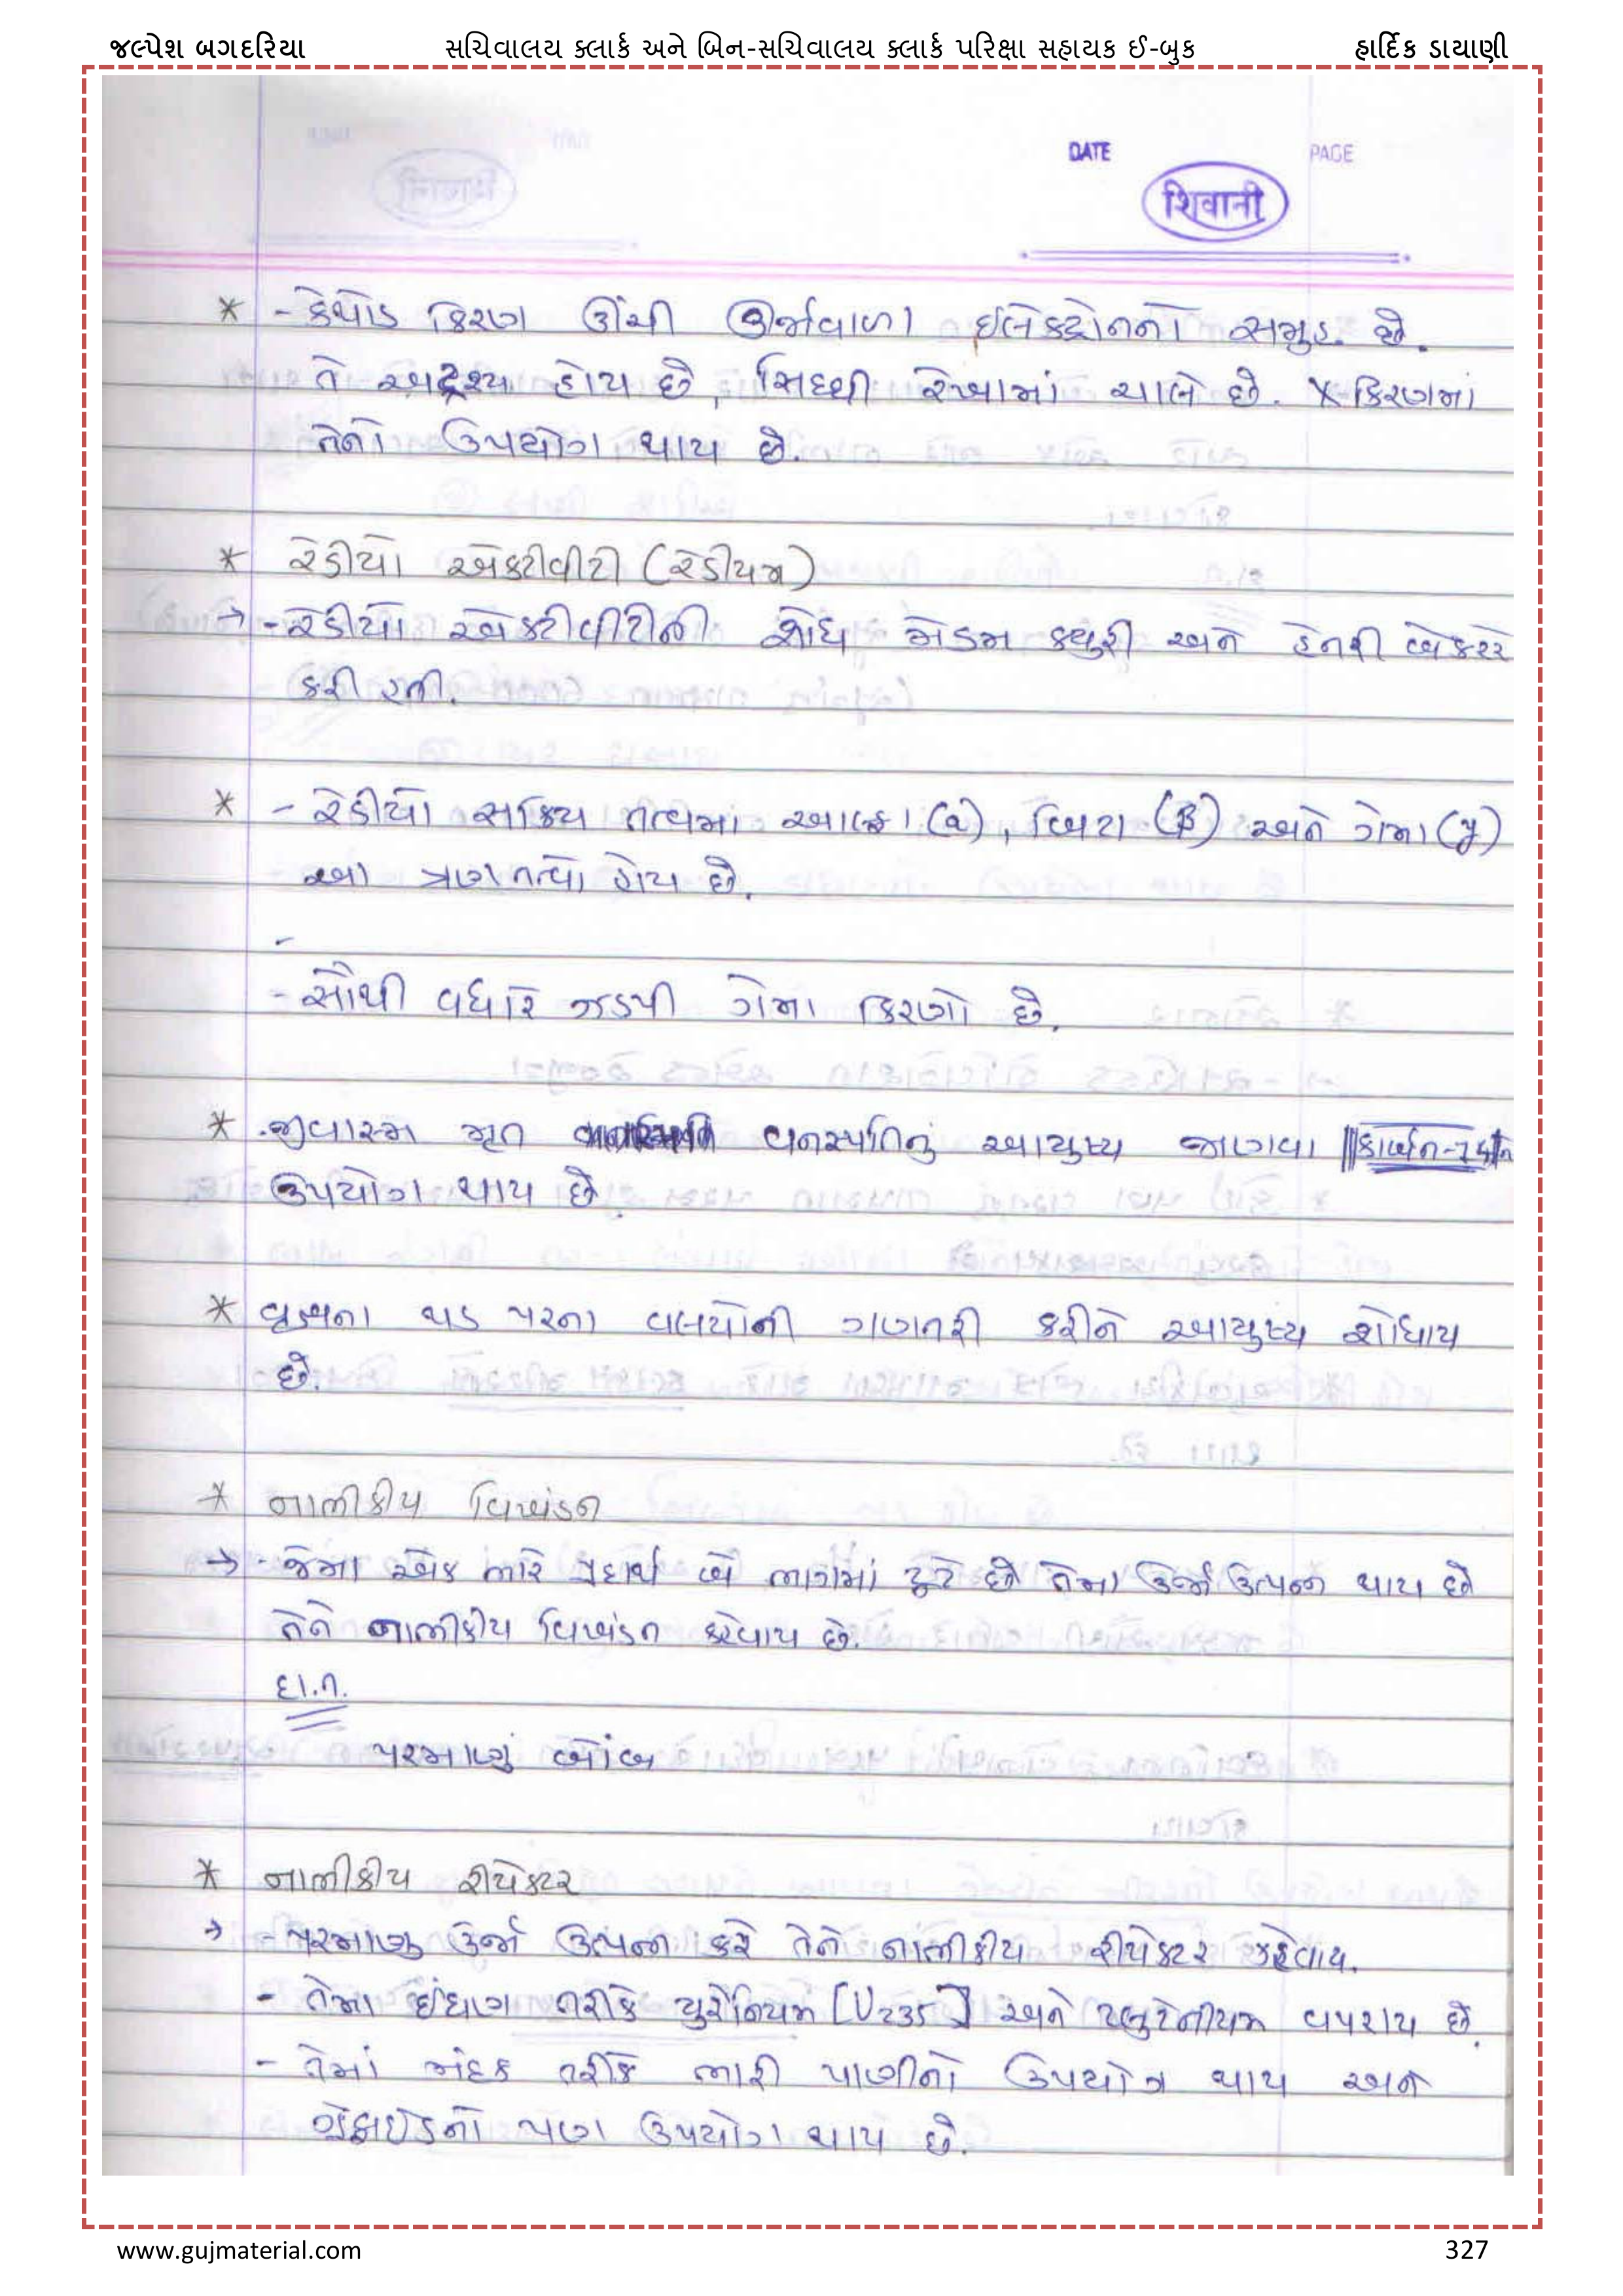 જલ્પેશ બગદરિયા સચિવાલય ક્લાર્ક અને બિન-સચિવાલય ક્લાર્ક પરિક્ષા સહાયક ઈ-બુક હાર્દિક ડાયાણી
DATE PAGE
शिवानी
* - કેથોડ કિરણ ઊંચી ઊર્જાવાળા ઈલેકટ્રોનનો સમુહ છે.
તે અદ્રશ્ય હોય છે, સિધ્ધી રેખામાં ચાલે છે. X કિરણમાં
તેનો ઉપયોગ થાય છે.
* રેડીયો એકટીવીટી (રેડીયમ)
→ - રેડીયો એકટીવીટીની શોધ મેડમ ક્યુરી અને હેનરી બેકરરે
કરી હતી.
* - રેડીયો સક્રિય તત્વમાં આલ્ફા (α), બિટા (β) અને ગેમા (γ)
આ ત્રણ તત્વો હોય છે.
- સૌથી વધારે ઝડપી ગેમા કિરણો છે.
* જીવાશ્મ મૃત વનસ્પતિનું આયુષ્ય જાણવા કાર્બન-14નો
ઉપયોગ થાય છે.
* વૃક્ષના થડ પરના વલયોની ગણતરી કરીને આયુષ્ય શોધાય
છે.
* નાભીકીય વિખંડન
→ - જેમા એક ભારે પદાર્થ બે ભાગેમાં ટુટે છે તેમા ઉર્જા ઉત્પન્ન થાય છે
તેને નાભીકીય વિખંડન કહેવાય છે.
દા.ત.
પરમાણું બોંબ
* નાભીકીય રીયેકટર
→ - પરમાણુ ઉર્જા ઉત્પન્ન કરે તેને નાભીકીય રીયેકટર કહેવાય.
- તેમા ઇંધણ તરીકે યુરેનિયમ [U235] અને પ્લુટેનીયમ વપરાય છે.
- તેમાં મંદક તરીકે ભારી પાણીનો ઉપયોગ થાય અને
ગ્રેફાઈડનો પણ ઉપયોગ થાય છે.
www.gujmaterial.com 327